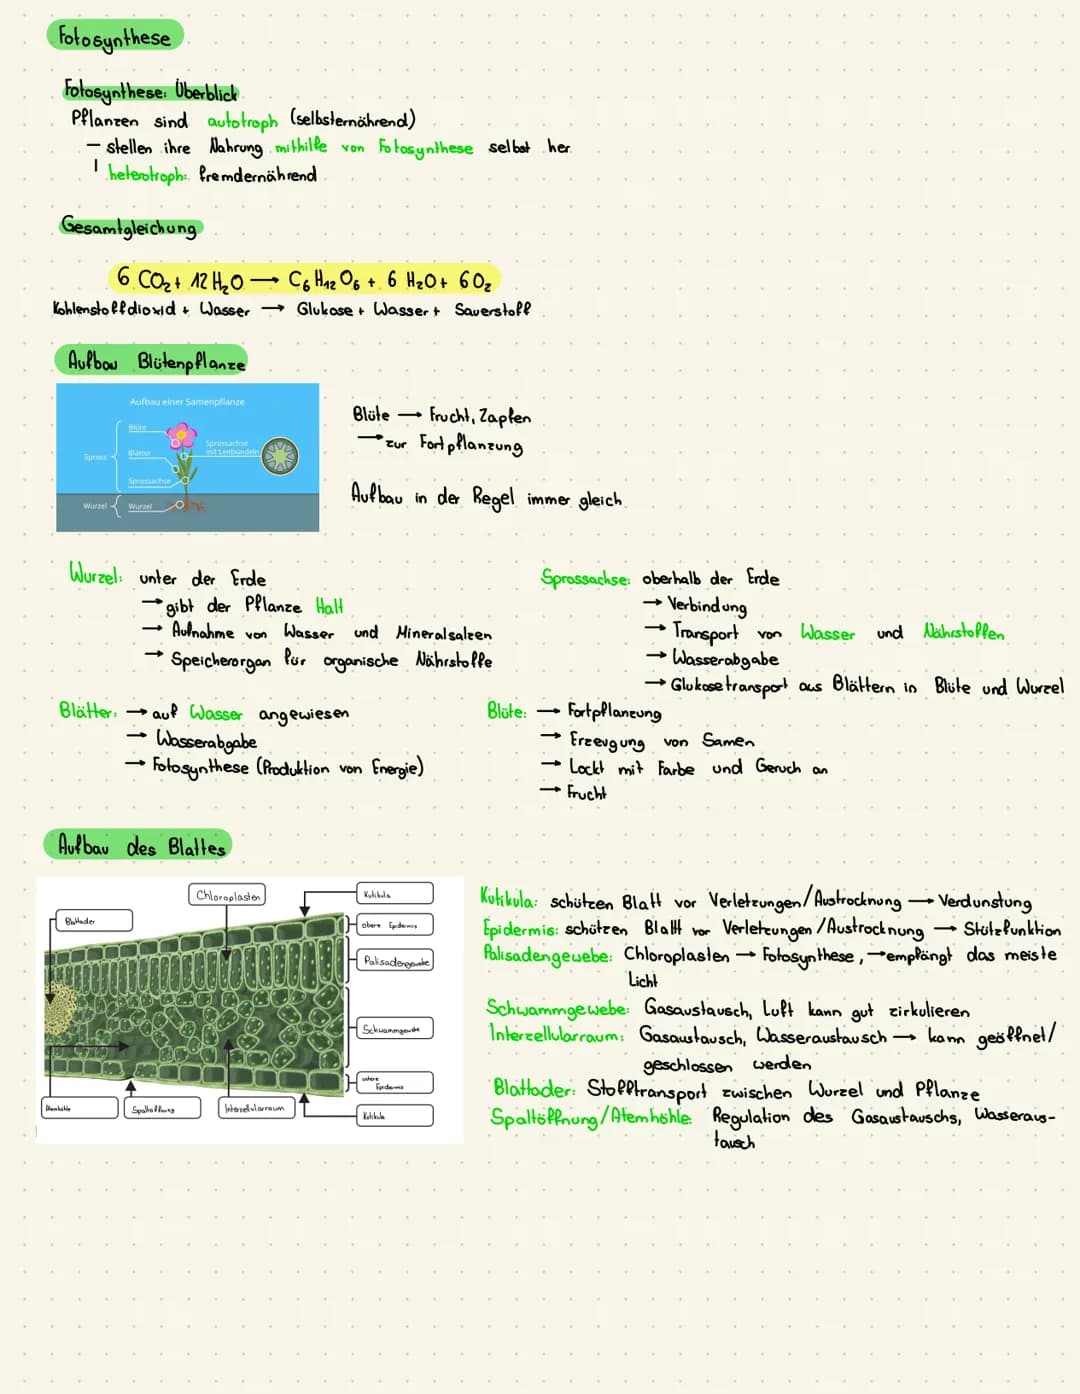 Fotosynthese
Fotosynthese: Überblick
Pflanzen sind autotroph (selbsternährend)
– stellen ihre Nahrung mithilfe von Fotosynthese selbst her
heterotroph: fremdernährend
Gesamtgleichung
6 CO₂ + 12 H₂O → C₆H₁₂O₆ + 6 H₂O + 6 O₂
Kohlenstoffdioxid + Wasser → Glukose + Wasser + Sauerstoff
Aufbau Blütenpflanze
Aufbau einer Samenpflanze
Blüte
Sprossachse
mit Leitbündeln
Spross
Blätter
Sprossachse
Wurzel
Wurzel
Blüte → Frucht, Zapfen
→ zur Fortpflanzung
Aufbau in der Regel immer gleich
Wurzel: unter der Erde
→ gibt der Pflanze Halt
→ Aufnahme von Wasser und Mineralsalzen
→ Speicherorgan für organische Nährstoffe
Sprossachse: oberhalb der Erde
→ Verbindung
→ Transport von Wasser und Nährstoffen
→ Wasserabgabe
→ Glukosetransport aus Blättern in Blüte und Wurzel
Blätter: → auf Wasser angewiesen
→ Wasserabgabe
→ Fotosynthese (Produktion von Energie)
Blüte: → Fortpflanzung
→ Erzeugung von Samen
→ Lockt mit Farbe und Geruch an
→ Frucht
Aufbau des Blattes
Chloroplasten
Kutikula
Blattader
obere Epidermis
Palisadengewebe
Schwammgewebe
untere
Epidermis
Atemhöhle
Spaltöffnung
Interzellularraum
Kutikula
Kutikula: schützen Blatt vor Verletzungen/Austrocknung → Verdunstung
Epidermis: schützen Blatt vor Verletzungen/Austrocknung → Stützfunktion
Palisadengewebe: Chloroplasten → Fotosynthese, → empfängt das meiste
Licht
Schwammgewebe: Gasaustausch, Luft kann gut zirkulieren
Interzellularraum: Gasaustausch, Wasseraustausch → kann geöffnet/
geschlossen werden
Blattader: Stofftransport zwischen Wurzel und Pflanze
Spaltöffnung/Atemhöhle: Regulation des Gasaustauschs, Wasseraus-
tausch